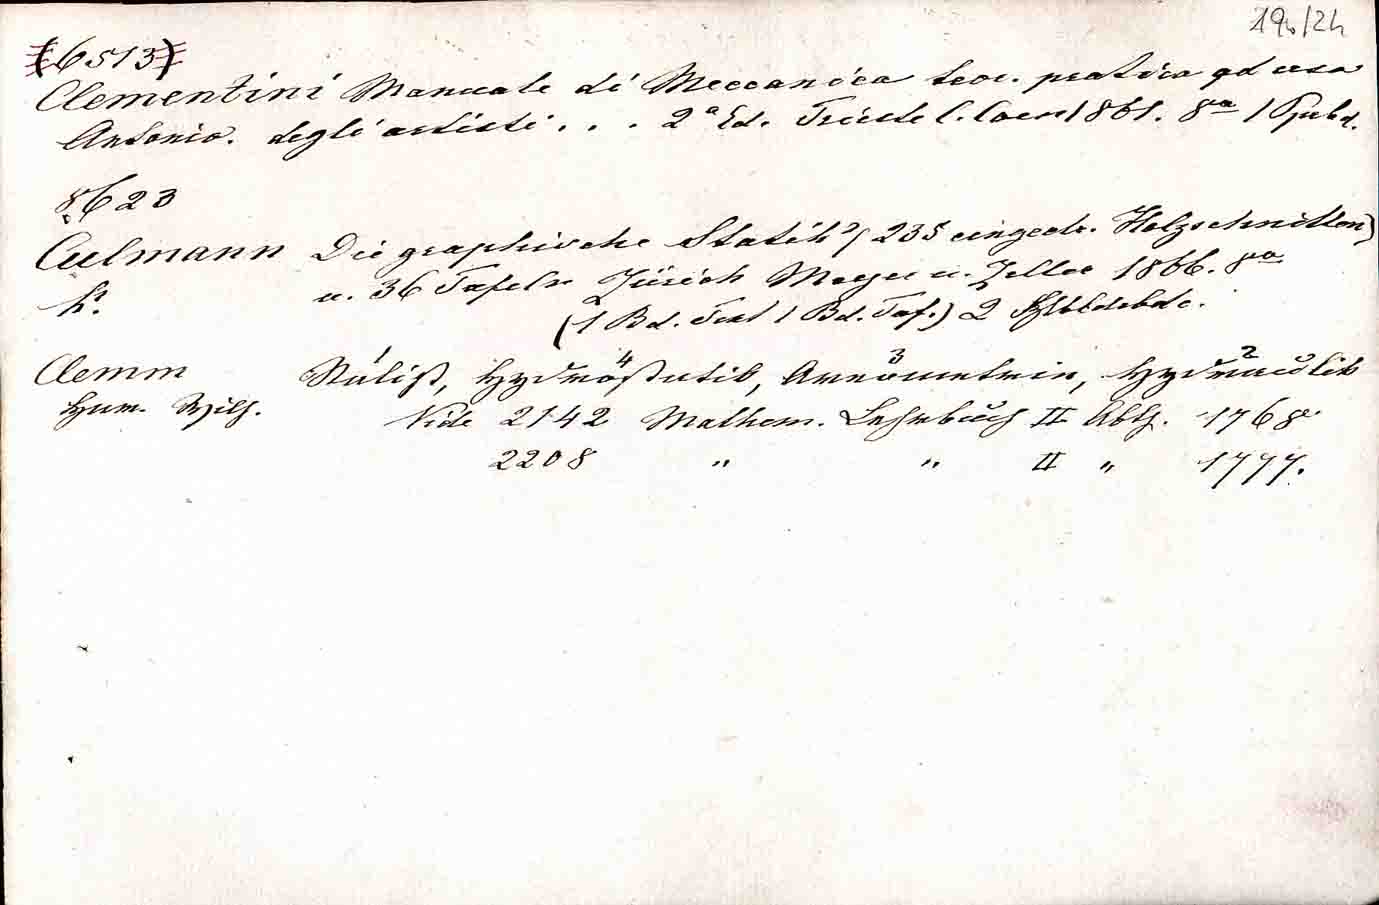 19b/24
(6513)
Clementini Manuale di Meccanica teor. pratica ad uso
Antonio. degli artisti . . . 2ª Ed. Trieste C. Coen 1861. 8º 1
8623
Culmann Die graphische Statik 235 eingedr. Holzschnitten)
K. u. 36 Tafeln Zürich Meyer u. Zeller 1866. 8º
(1 Bd. Text 1 Bd. Taf.) 2
Clemm Statik, Hydrostatik, Areometrie, Hydraulik
Hnr. Wilh. Vide 2142 Mathem. Lehrbuch II Abth. 1768
2208 " " II " 1777.